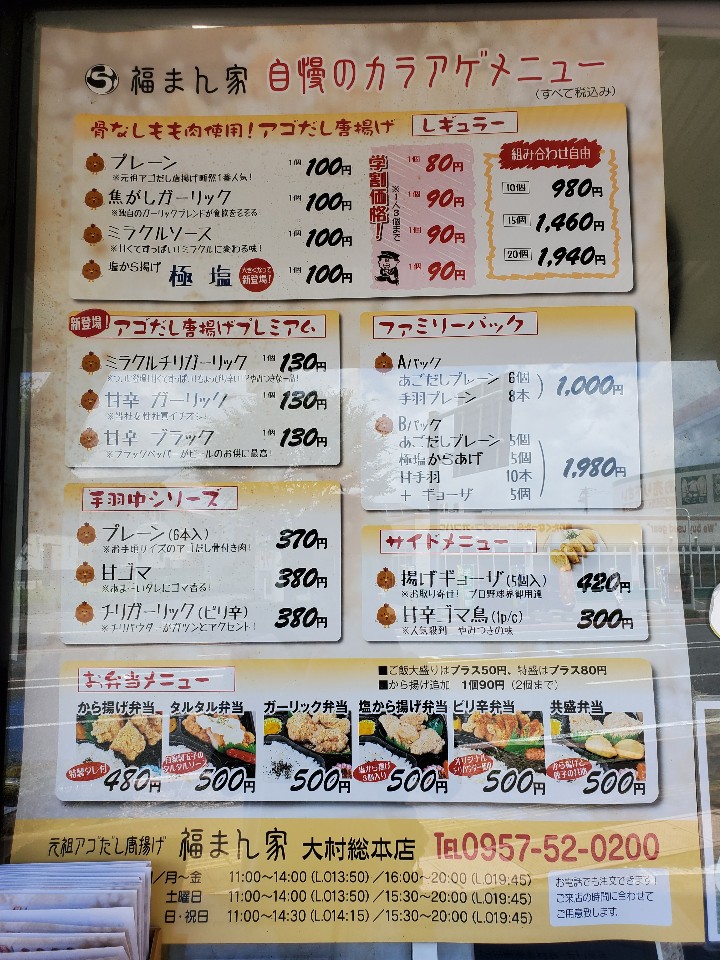 福まん家 自慢のカラアゲメニュー
(すべて税込み)
骨なしもも肉使用!アゴだし唐揚げ レギュラー
プレーン 1個 100円
※元祖アゴだし唐揚げ断然1番人気!
焦がしガーリック 1個 100円
※独自のガーリックブレンドが食欲をそそる
ミラクルソース 1個 100円
※甘くてすっぱい!ミラクルに変わる味!
塩から揚げ 極塩 大きくなって新登場! 1個 100円
学割価格!
※一人3個まで
1個 80円
1個 90円
1個 90円
1個 90円
組み合わせ自由
10個 980円
15個 1,460円
20個 1,940円
新登場! アゴだし唐揚げプレミアム
ミラクルチリガーリック 1個 130円
甘辛 ガーリック 1個 130円
※当社女性社員イチオシ!
甘辛 ブラック 1個 130円
※ブラックペッパーがビールのお供に最高!
ファミリーパック
Aパック
あごだしプレーン 6個
手羽プレーン 8本
1,000円
Bパック
あごだしプレーン 5個
極塩からあげ 5個
甘手羽 10本
+ ギョーザ 5個
1,980円
手羽中シリーズ
プレーン(6本入) 370円
※お手頃サイズのアゴだし骨付き肉!
甘ゴマ 380円
※あま〜いタレにゴマ香る!
チリガーリック(ピリ辛) 380円
※チリパウダーがガツンとアクセント!
サイドメニュー
揚げギョーザ(5個入) 420円
※お取り寄せ! プロ野球界御用達
甘辛ゴマ鳥(1p/c) 300円
※人気殺到 やみつきの味
お弁当メニュー
■ご飯大盛りはプラス50円、特盛はプラス80円
■から揚げ追加 1個90円(2個まで)
から揚げ弁当 タルタル弁当 ガーリック弁当 塩から揚げ弁当 ピリ辛弁当 共盛弁当
特製タレ付
自家製玉子のタルタルソース
塩から揚げ3個入り
オリジナルチリパウダー使用
から揚げと餃子の共演
480円 500円 500円 500円 500円 500円
元祖アゴだし唐揚げ 福まん家 大村総本店 TEL0957-52-0200
/月〜金 11:00〜14:00 (L.O13:50) /16:00〜20:00 (L.O19:45)
土曜日 11:00〜14:00 (L.O13:50) /15:30〜20:00 (L.O19:45)
日・祝日 11:00〜14:30 (L.O14:15) /15:30〜20:00 (L.O19:45)
お電話でも注文できます!
ご来店の時間に合わせて
ご用意致します。